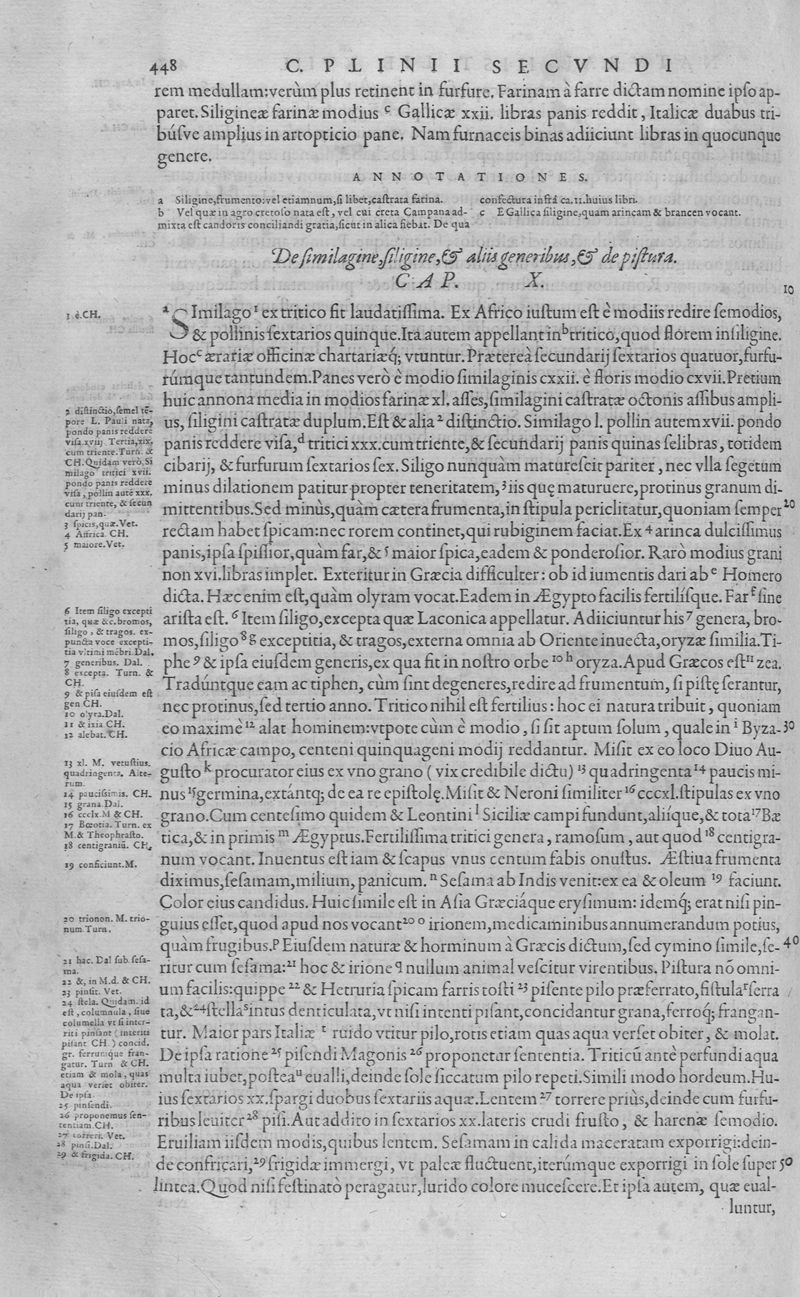 448 C. PLINII SECVNDI
rem medullam:verùm plus retinent in furfure. Farinam à farre dictam nomine ipso ap-
paret. Siligineæ farinæ modius c Gallicæ xxii. libras panis reddit, Italicæ duabus tri-
búsve amplius in artopticio pane. Nam furnaceis binas adiiciunt libras in quocunque
genere.
ANNOTATIONES.
a Siligine,frumento:vel etiamnum,si libet,castrata farina.
b Vel quæ in agro cretoso nata est, vel cui creta Campana ad-
mixta est candoris conciliandi gratia,sicut in alica fiebat. De qua
confectura infrà ca.11.huius libri.
c E Gallica siligine,quam arincam & brancen vocant.
De similagine,siligine,& aliis generibus,& de pistura.
CAP. X.
10
a SImilago 1 ex tritico fit laudatissima. Ex Africo iustum est è modiis redire semodios,
& pollinis sextarios quinque.Ita autem appellant in b tritico,quod florem in siligine.
Hoc c ærariæ officinæ chartariæq; vtuntur.Præterea secundarij sextarios quatuor,furfu-
rúmque tantundem.Panes verò è modio similaginis cxxii. è floris modio cxvii.Pretium
huic annona media in modios farinæ xl. asses,similagini castratæ octonis assibus ampli-
us, siligini castratæ duplum.Est & alia 2 distinctio. Similago l. pollin autem xvii. pondo
panis reddere visa,d tritici xxx.cum triente,& secundarij panis quinas selibras, totidem
cibarij, & furfurum sextarios sex. Siligo nunquàm maturescit pariter, nec vlla segetum
minus dilationem patitur propter teneritatem, 3 iis quę maturuere,protinus granum di-
mittentibus.Sed minùs,quàm cætera frumenta,in stipula periclitatur,quoniam semper 20
rectam habet spicam:nec rorem continet,qui rubiginem faciat.Ex 4 arinca dulcissimus
panis,ipsa spissior,quàm far,& 5 maior spica,eadem & ponderosior. Rarò modius grani
non xvi.libras implet. Exteritur in Græcia difficulter: ob id iumentis dari ab e Homero
dicta. Hæc enim est,quàm olyram vocat.Eadem in Ægypto facilis fertilísque. Far f sine
arista est. 6 Item siligo,excepta quæ Laconica appellatur. Adiiciuntur his 7 genera, bro-
mos,siligo 8 g exceptitia, & tragos,externa omnia ab Oriente inuecta,oryzæ similia.Ti-
phe 9 & ipsa eiusdem generis,ex qua fit in nostro orbe 10 h oryza.Apud Græcos est 11 zea.
Tradúntque eam ac tiphen, cùm sint degeneres,redire ad frumentum, si pistę serantur,
nec protinus,sed tertio anno. Tritico nihil est fertilius: hoc ei natura tribuit, quoniam
eo maximè 12 alat hominem:vtpote cùm è modio, si sit aptum solum, quale in i Byza- 30
cio Africæ campo, centeni quinquageni modij reddantur. Misit ex eo loco Diuo Au-
gusto k procurator eius ex vno grano (vix credibile dictu) 13 quadringenta 14 paucis mi-
nus 15 germina,extántq; de ea re epistolę.Misit & Neroni similiter 16 cccxl.stipulas ex vno
grano.Cum centesimo quidem & Leontini l Siciliæ campi fundunt,aliíque,& tota 17 Bæ
tica,& in primis m Ægyptus.Fertilissima tritici genera, ramosum, aut quod 18 centigra-
num vocant. Inuentus est iam & scapus vnus centum fabis onustus. Æstiua frumenta
diximus,sesamam,milium, panicum. n Sesama ab Indis venit:ex ea & oleum 19 faciunt.
Color eius candidus. Huic simile est in Asia Græciáque erysimum: idemq; erat nisi pin-
guius esset,quod apud nos vocant 20 o irionem,medicaminibus annumerandum potius,
quàm frugibus.p Eiusdem naturæ & horminum à Græcis dictum,sed cymino simile,se- 40
ritur cum sesama: 21 hoc & irione q nullum animal vescitur virentibus. Pistura nõ omni-
um facilis:quippe 22 & Hetruria spicam farris tosti 23 pisente pilo præferrato,fistula r serra
ta,& 24 stella s intus denticulata,vt nisi intenti pisant,concidantur grana,ferroq; frangan-
tur. Maior pars Italiæ t ruido vtitur pilo,rotis etiam quas aqua verset obiter, & molat.
De ipsa ratione 25 pisendi Magonis 26 proponetur sententia. Triticũ antè perfundi aqua
multa iubet,postea u eualli,deinde sole siccatum pilo repeti.Simili modo hordeum.Hu-
ius sextarios xx.spargi duobus sextariis aquæ.Lentem 27 torrere priùs,deinde cum furfu-
ribus leuiter 28 pisi.Aut addito in sextarios xx.lateris crudi frusto, & harenæ semodio.
Eruiliam iisdem modis,quibus lentem. Sesamam in calida maceratam exporrigi:dein-
de confricari, 29 frigidæ immergi, vt paleæ fluctuent,iterúmque exporrigi in sole super 50
lintea.Quod nisi festinatò peragatur,lurido colore mucescere.Et ipsa autem, quæ eual-
luntur,
1 è.CH.
2 distinctio,semel tē-
pore L. Pauli nata,
pondo panis reddere
visa.xviij. Tertia,xix,
cum triente.Turn. &
CH.Quidam verò,Si
milago tritici xvii.
pondo panis reddere
visa, pollin autē xxx.
cum triente, & secun
darij pan.
3 spicis,quæ.Vet.
4 Affrica. CH.
5 maiore.Vet.
6 Item siligo excepti
tia, quæ &c.bromos,
siligo, & tragos. ex-
puncta voce excepti-
tia vltimi mēbri.Dal.
7 generibus. Dal.
8 excepta. Turn. &
CH.
9 & pisa eiusdem est
gen CH.
10 olyra.Dal.
11 & ixia CH.
12 alebat.CH.
13 xl. M. vetustius.
quadringenta. Alte-
rum.
14 paucissimis. CH.
15 grana Dal.
16 ccclx.M & CH.
17 Bœotia. Turn. ex
M.& Theophrasto.
18 centigraniũ. CH.
19 conficiunt.M.
20 trionon. M. trio-
num Turn.
21 hac. Dal sub.sesa-
ma.
22 &, in M.d. & CH.
23 pinsit. Vet.
24 stela. Quidam. id
est, columnula, siue
columella vt si inter-
riti pinsant (interiti
pisant CH.) concid.
gr. ferrumque fran-
gatur. Turn & CH.
etiam & mola, quas
aqua verset obiter.
De ipsa
25 pinsendi.
26 proponemus sen-
tentiam.CH.
27 torreri. Vet.
28 pinsi.Dal.
29 & frigida. CH.